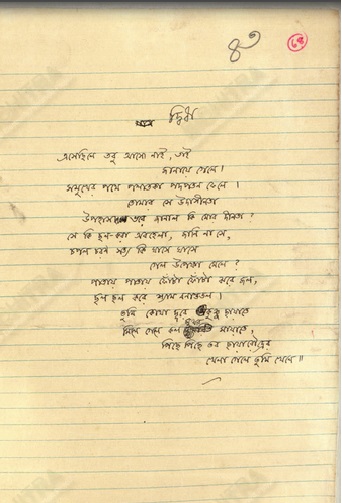 দ্বিধা
এসেছিলে তবু আসো নাই, তাই
জানায়ে গেলে।
সমুখের পথে পলাতকা পদপতন ফেলে।
তোমার সে উদাসীনতা
জানাল কি মোর দীনতা?
সে কি ছল-করা অবহেলা, জানি না সে,
চপল চরণ সত্য কি ঘাসে ঘাসে
গেল উপেক্ষা মেলে?
পাতায় পাতায় ফোঁটা ফোঁটা ঝরে জল,
ছল ছল করে শ্যাম বনান্ততল।
তুমি কোথা দূরে কুঞ্জ ছায়াতে
মিলে গেলে কল মুখর মায়াতে,
পিছে পিছে তব ছায়ারৌদ্রের
খেলা গেলে তুমি খেলে॥